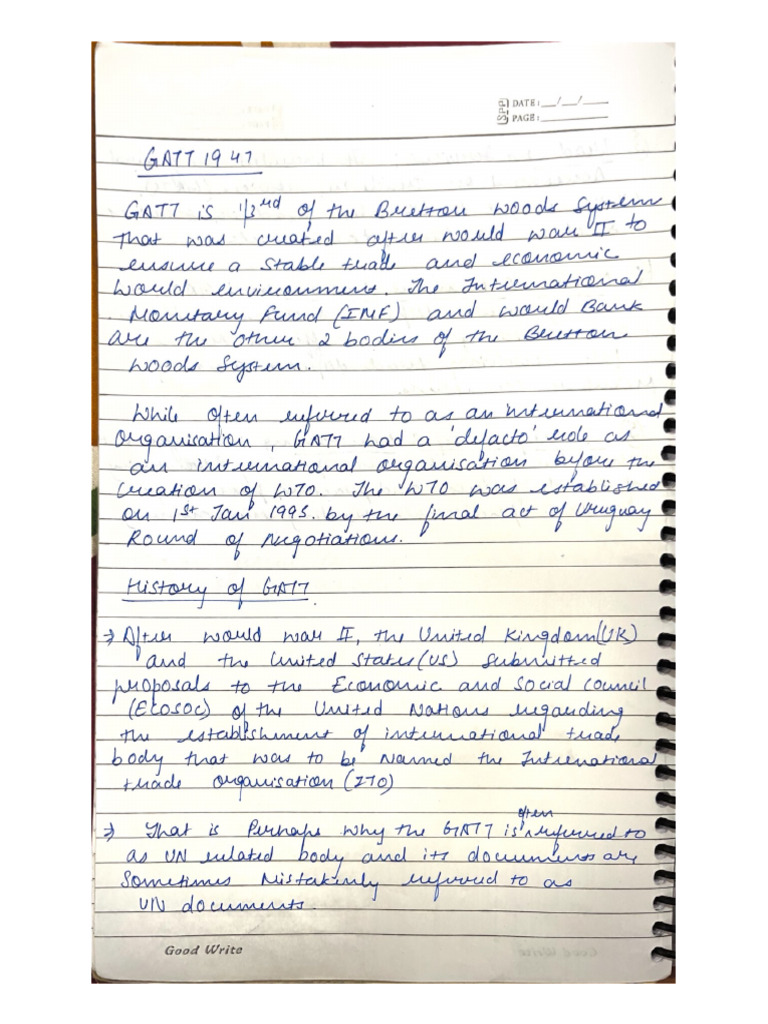 SPP DATE: __/__/____
PAGE: ________
GATT 1947
GATT is 1/3rd of the Bretton Woods System
that was created after world war II to
ensure a stable trade and economic
world environment. The International
Monetary Fund (IMF) and world Bank
are the other 2 bodies of the Bretton
Woods System.
While often referred to as an international
Organisation, GATT had a 'defacto' role as
an international organisation before the
creation of WTO. The WTO was established
on 1st Jan 1995. by the final act of Uruguay
Round of Negotiations.
History of GATT
⇒ After world war II, the United Kingdom (UK)
and the United States (US) submitted
proposals to the Economic and Social Council
(ECOSOC) of the United Nations regarding
the establishment of international trade
body that was to be named the International
trade organisation (ITO)
⇒ That is Perhaps why the GATT is often referred to
as UN related body and its documents are
sometimes Mistakenly referred to as
UN documents.
Good Write